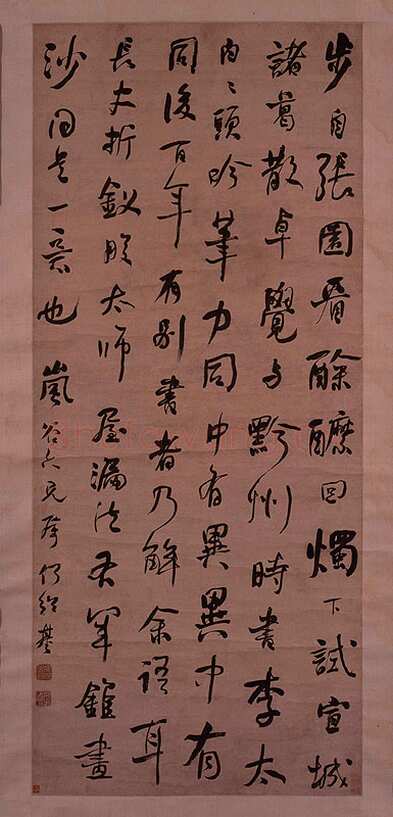 步自張園看酴醿回燭下試宣城
諸葛散卓覺与黔州時書李太
白〻頭吟筆力同中有異異中有
同後百年有別書者乃解余語耳
長史折釵股太師屋漏法右軍錐畫
沙同是一意也 嵐谷六兄屬 何紹基